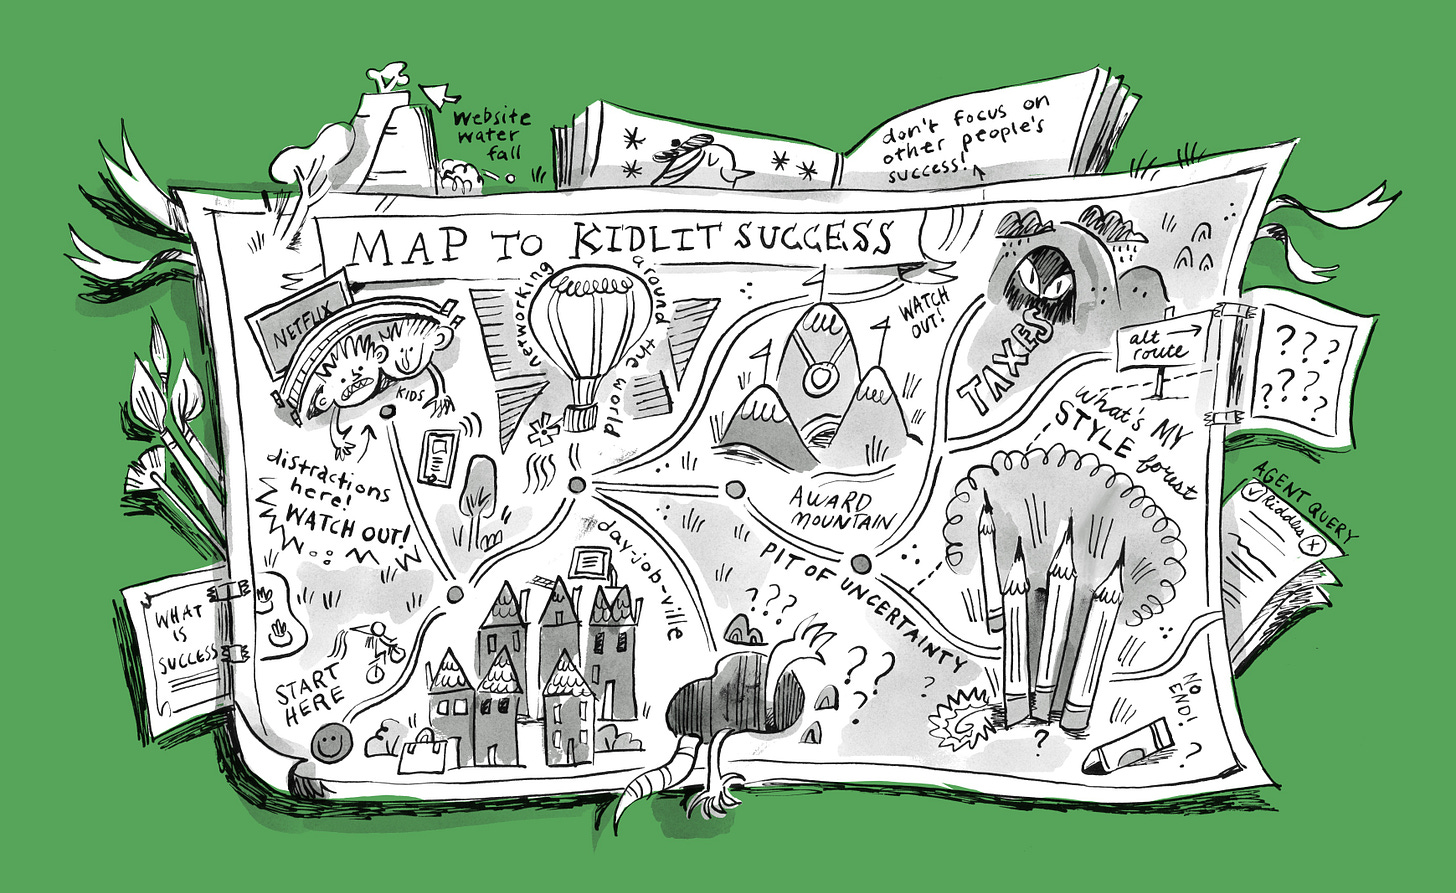 website
water
fall
don't focus on
other people's
success!
MAP TO KIDLIT SUCCESS
NETFLIX
KIDS
networking around the world
WATCH
OUT!
TAXES
alt
route
? ? ?
? ? ? ?
What's MY
STYLE forest
distractions
here!
WATCH OUT!
AWARD
MOUNTAIN
AGENT QUERY
Riddles
day-job-ville
PIT OF UNCERTAINTY
WHAT
IS
SUCCESS
START
HERE
? ? ?
? ?
?
?
?
NO
END!
?